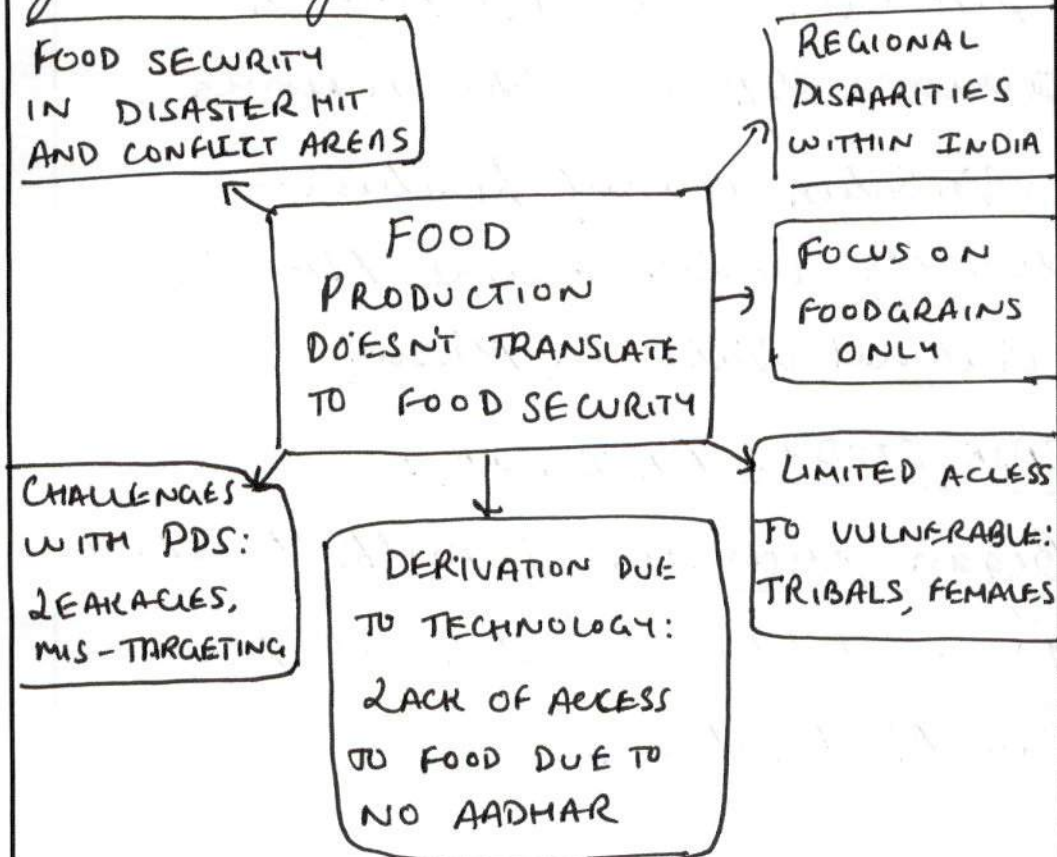 FOOD SECURITY
IN DISASTER HIT
AND CONFLICT AREAS
REGIONAL
DISPARITIES
WITHIN INDIA
FOOD
PRODUCTION
DOESN'T TRANSLATE
TO FOOD SECURITY
FOCUS ON
FOODGRAINS
ONLY
CHALLENGES
WITH PDS:
LEAKAGES,
MIS-TARGETING
DERIVATION DUE
TO TECHNOLOGY:
LACK OF ACCESS
TO FOOD DUE TO
NO AADHAR
LIMITED ACCESS
TO VULNERABLE:
TRIBALS, FEMALES